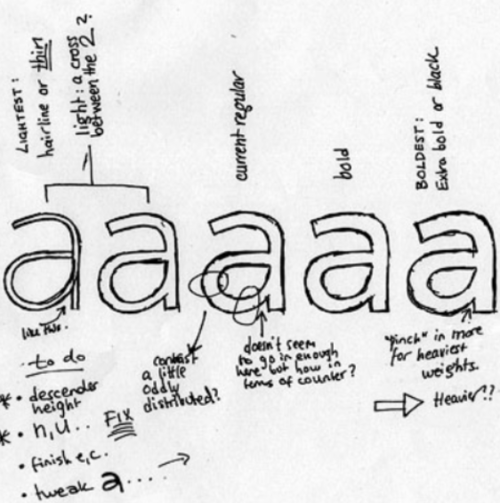 LIGHTEST:
hairline or thin
light: a cross
between the 2?
current regular
bold
BOLDEST:
Extra bold or black
a a a a a
like this.
contrast
a little
oddly
distributed?
doesn't seem
to go in enough
here but how in
terms of counter?
"pinch" in more
for heaviest
weights.
⇒ Heavier?!
to do
* • descender
height
* • n, u.. FIX
• finish e, c.
• tweak a.... →